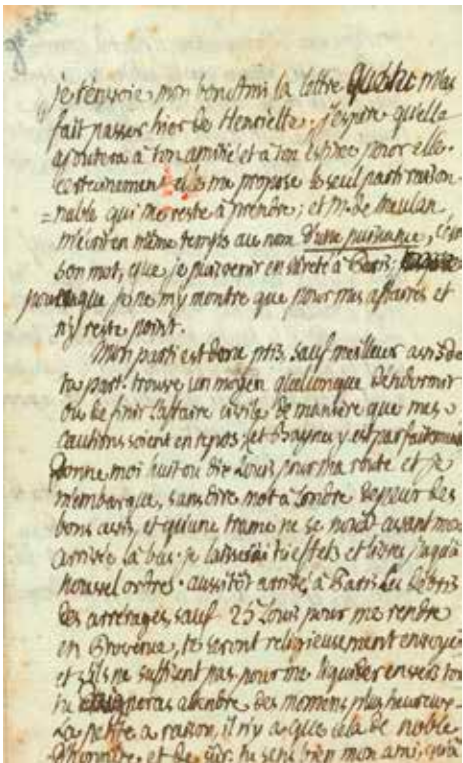 je renvoie mon bon ami la lettre que tu m'as
fait passer hier de Henriette. j'espère qu'elle
ajoutera à ton amitié et à ton estime pour elle.
certainement elle me propose le seul parti raison
=nable qui me reste à prendre; et M. de
m'écrit en même temps au nom d'une puissance, c'est
son mot, que je puis venir en sûreté à Paris;
pourvu que je ne m'y montre que pour mes affaires et
n'y reste point.
Mon parti est donc pris, sauf meilleur avis de
ta part. trouve un moyen quelconque d'endormir
ou de finir l'affaire civile de manière que mes
cautions soient en repos, et Baynes y est parfaitement
donne moi huit ou dix Louis pour ma route et je
m'embarque, sans dire mot à Londre de peur des
bons avis, et qu'une trame ne se noue avant mon
arrivée là bas. je laisserai tes effets et livres jusqu'à
nouvel ordres. aussitôt arrivé à Paris les débris
des arrérages, sauf 25 Louis pour me rendre
en Provence, te seront religieusement envoyé
et s'ils ne suffient pas pour me liquider envers toi
tu daigneras atendre des momens plus heureux.
La petite a raison, il n'y a que cela de noble
d'honnête, et de sûr. tu sens bien mon ami, qu'à